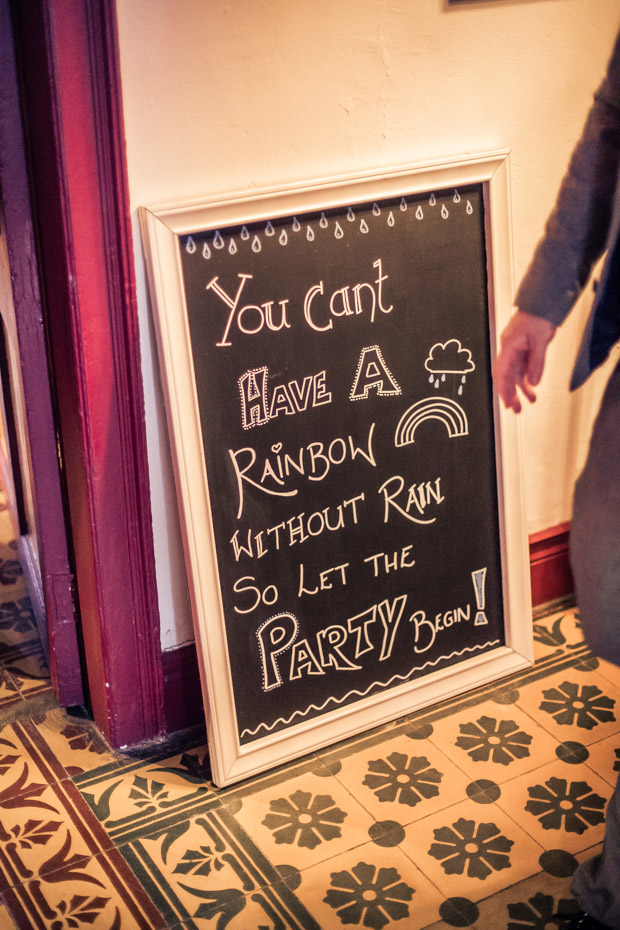 You Cant
Have A
Rainbow
Without Rain
So Let the
Party Begin!